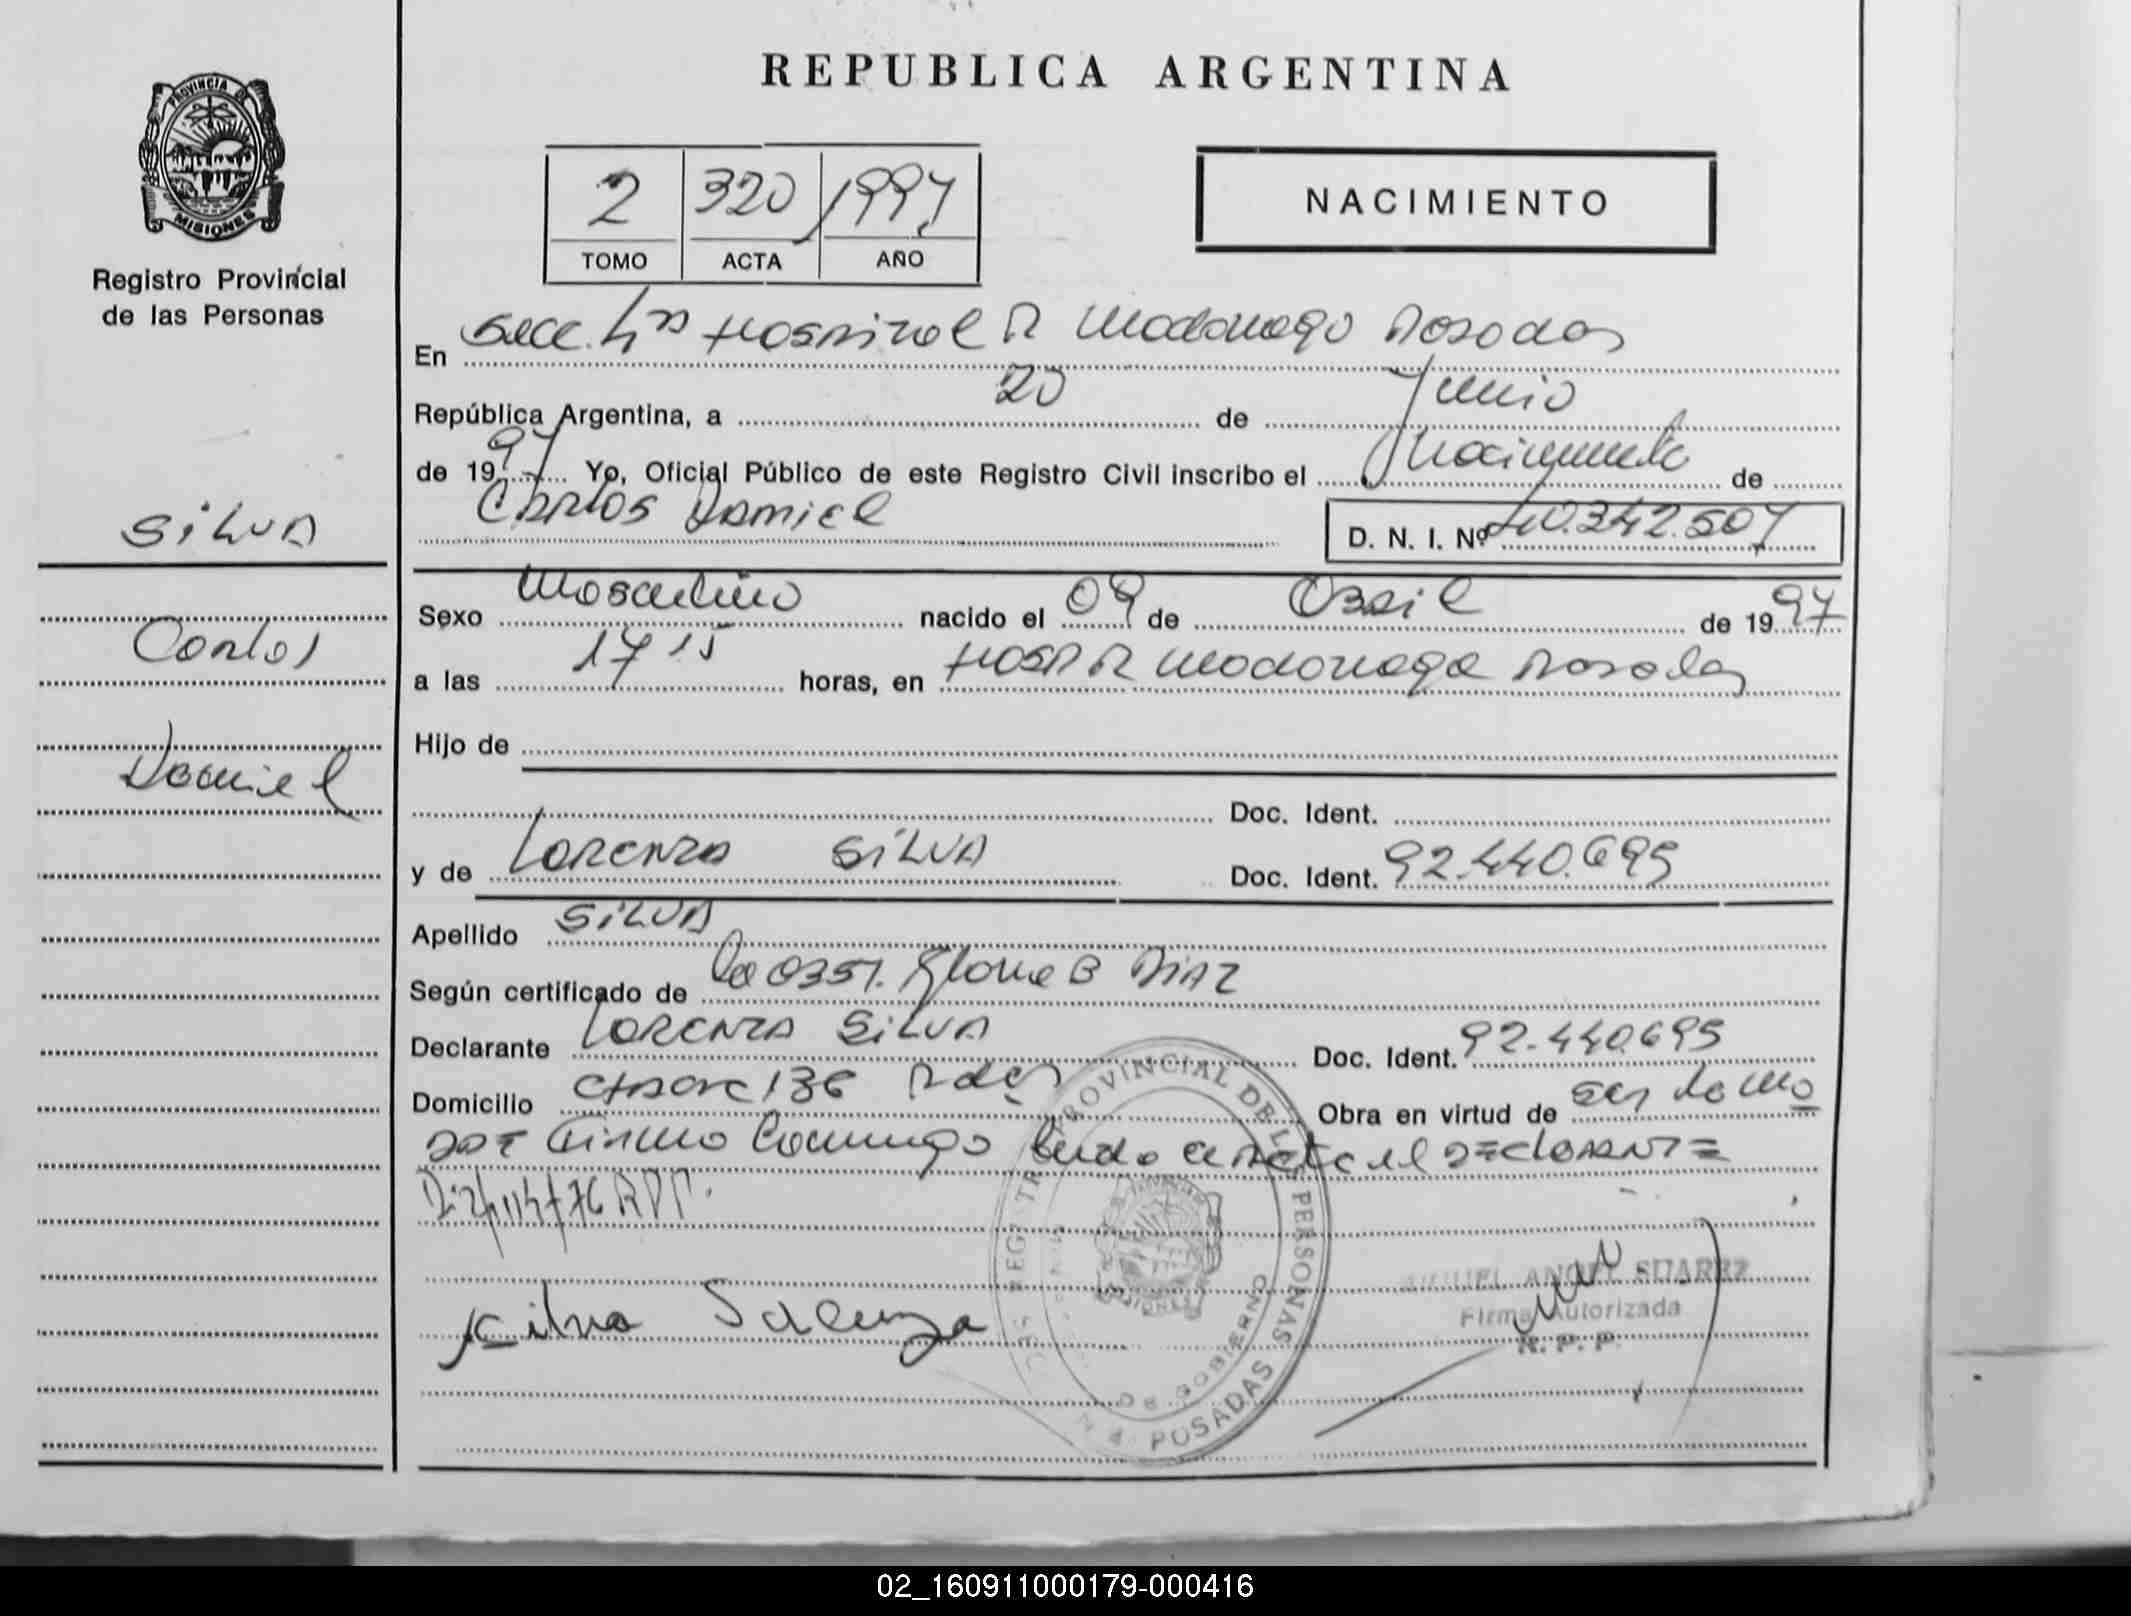 REPUBLICA ARGENTINA
PROVINCIA DE
MISIONES
Registro Provincial
de las Personas
2 320 1997
TOMO ACTA AÑO
NACIMIENTO
En Secc. Hospital R Madariaga Posadas
República Argentina, a 20 de Junio
de 1997 Yo, Oficial Público de este Registro Civil inscribo el Nacimiento de
Carlos Daniel D. N. I. Nº 40.342.507
SILVA
Carlos
Daniel
Sexo Masculino nacido el 09 de Abril de 1997
a las 17 15 horas, en Hosp R Madariaga Posadas
Hijo de
Doc. Ident.
y de Lorenza SILVA Doc. Ident. 92.440.695
Apellido SILVA
Según certificado de La Obst. B DIAZ
Declarante LORENZA SILVA Doc. Ident. 92.440.695
Domicilio 136 Pdas Obra en virtud de
declarante
Silva
MIGUEL ANGEL SUAREZ
Firma Autorizada
R. P. P.
REGISTRO PROVINCIAL DE LAS PERSONAS
DE GOBIERNO
MISIONES
POSADAS
02_160911000179-000416